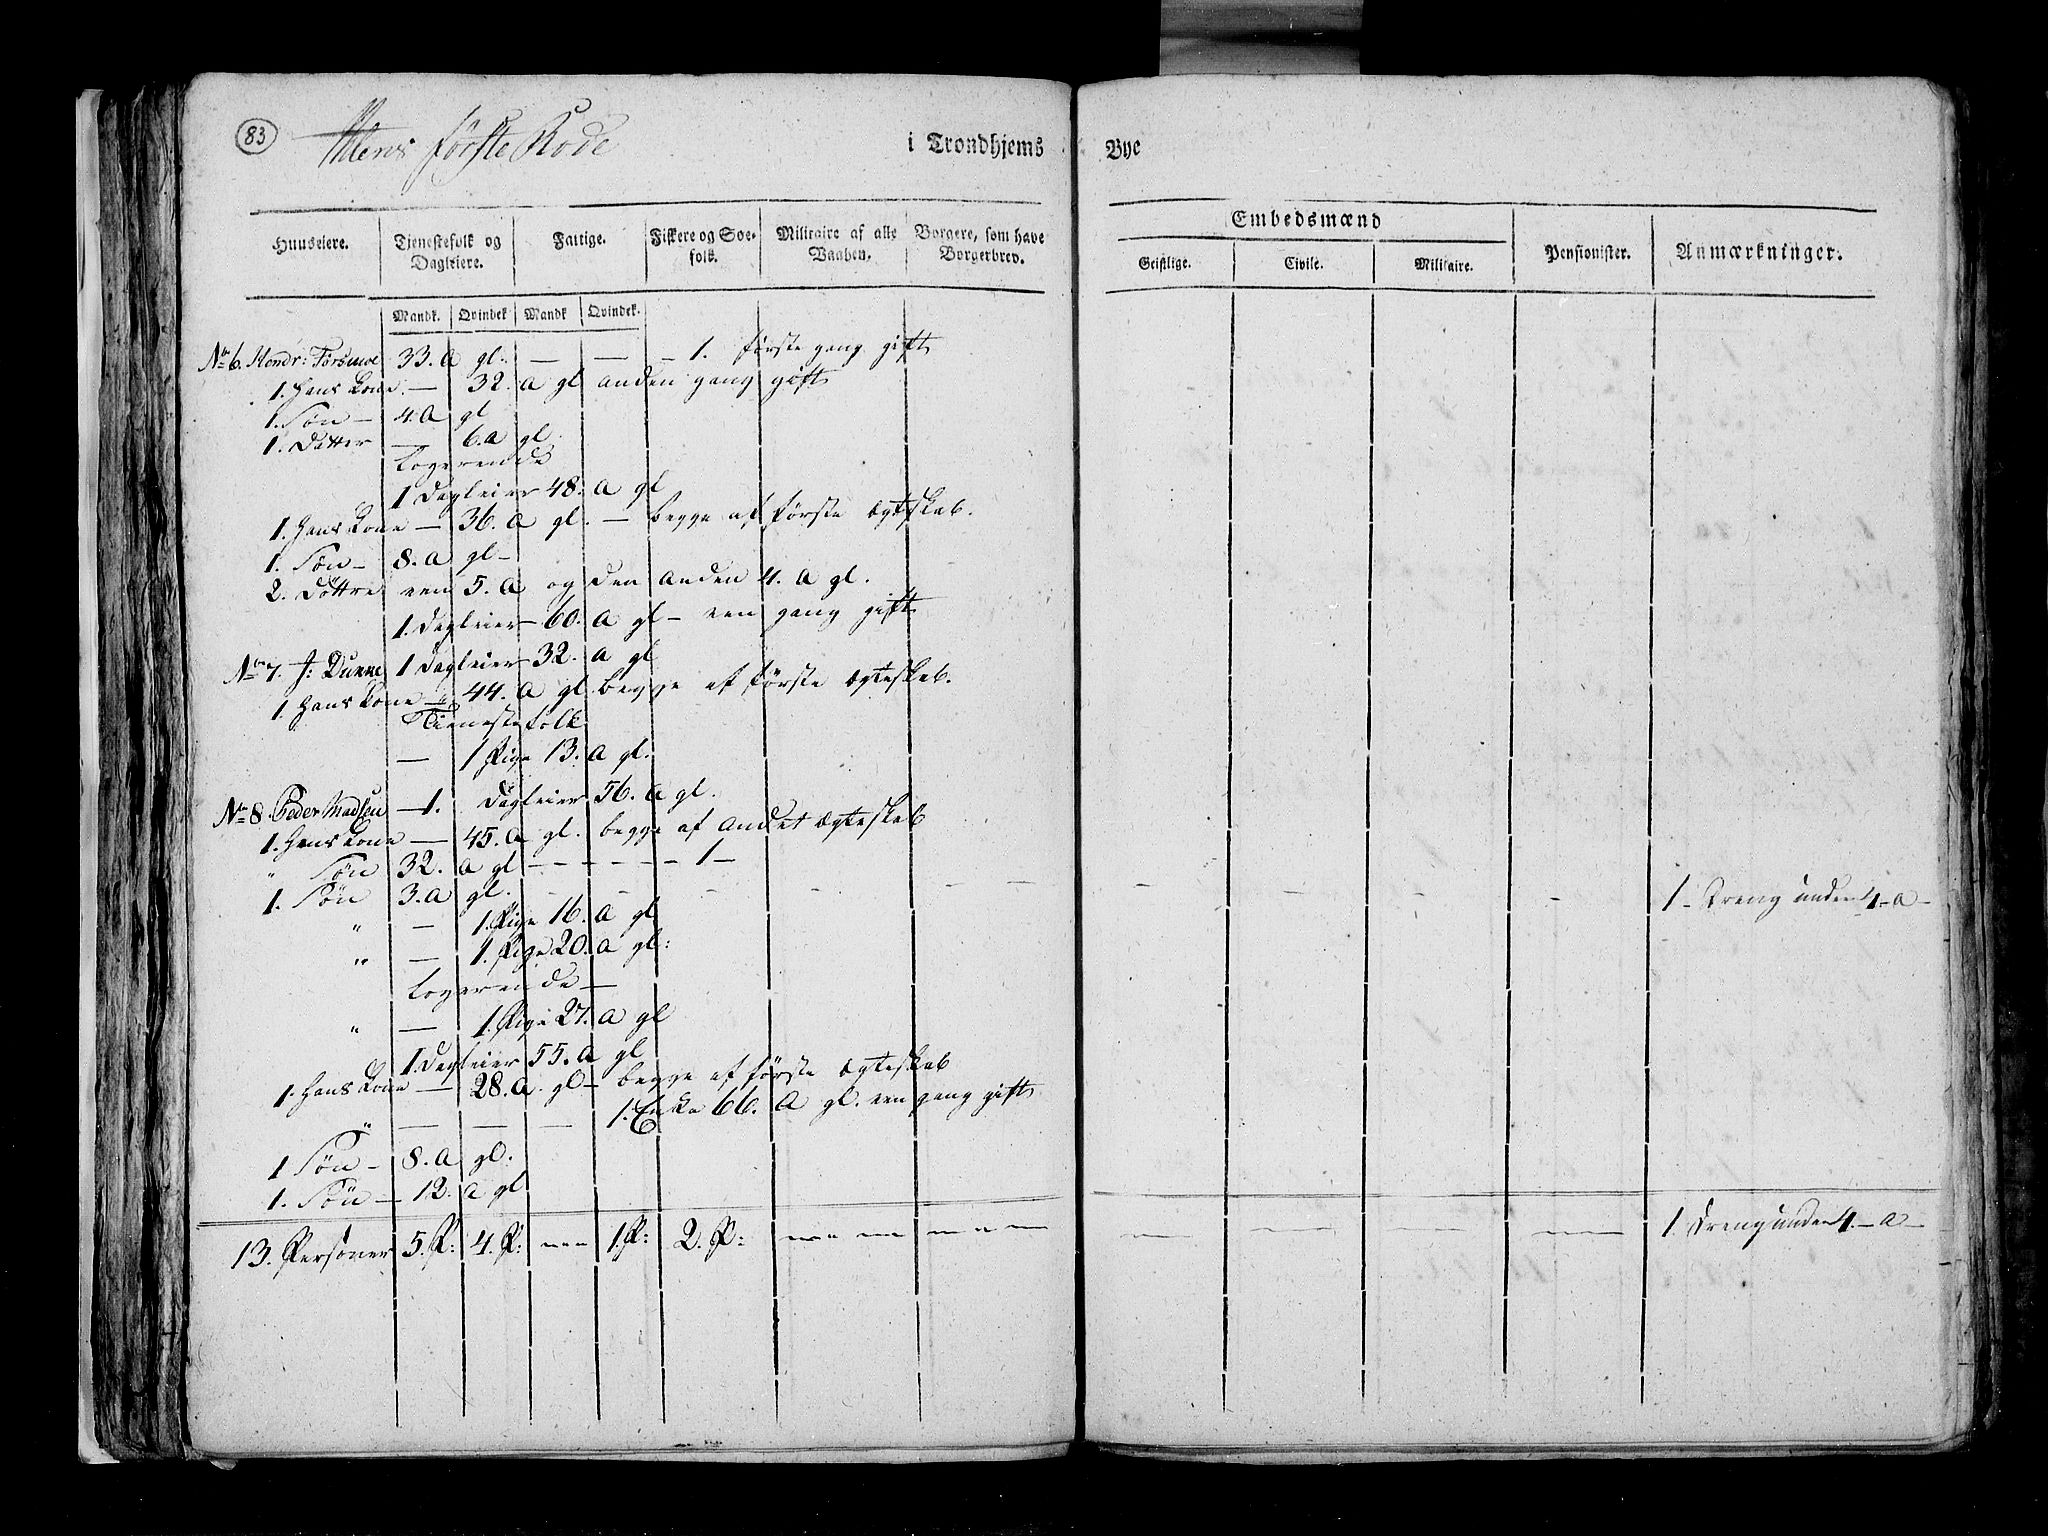 83
Ihlens første Rode i Trondhjems Bye
Huuseiere. Tjenestefolk og Dagleiere. Fattige. Fiskere og Søefolk. Militaire af alle Vaaben. Borgere, som have Borgerbrev.
Embedsmænd
Geistlige. Civile. Militaire. Pensionister. Anmærkninger.
Mandk. Qvindek Mandk Qvindek.
No 6. Hendr: Forsmoe 33. a gl. — — — 1. første gang gift
1. Hans Kone — 32. a gl anden gang gift
1. Søn — 4. a gl
1. Datter — 6. a gl
Logerende
1 Dagleier 48. a gl
1. Hans Kone — 36. a gl. — begge af første Ægteskab.
1. Søn — 8. a gl —
2. Døttre een 5. a og den anden 4. a gl.
1. Dagleier — 60. a gl — een gang gift
No 7. J: Dunne 1 Dagleier 32. a gl
1. Hans Kone — 44. a gl. begge af første Ægteskab.
Tienestefolk
— 1 Pige 13. a gl.
No 8. Peder Madsen — 1. Dagleier 56. a gl.
1. Hans Kone — 45. a gl. begge af Andet Ægteskab
" Søn 32. a gl — — — — — 1 —
1. Søn 3. a gl. — — — — — — — — — — 1 — Dreng under 4 — a —
" — 1. Pige 16. a gl
" — 1. Pige 20. a gl:
Logerende —
" — 1. Pige 27. a gl
1 Dagleier 55. a gl
1. Hans Kone — 28. a. gl — begge af første Ægteskab
" — — — 1. Enke 66. a gl. een gang gift
1 Søn — 8. a gl.
1. Søn — 12. a gl
13. Personer 5. P: 4. P: — 1. P: 2. P: — — — — — — 1. Dreng under 4 — a —